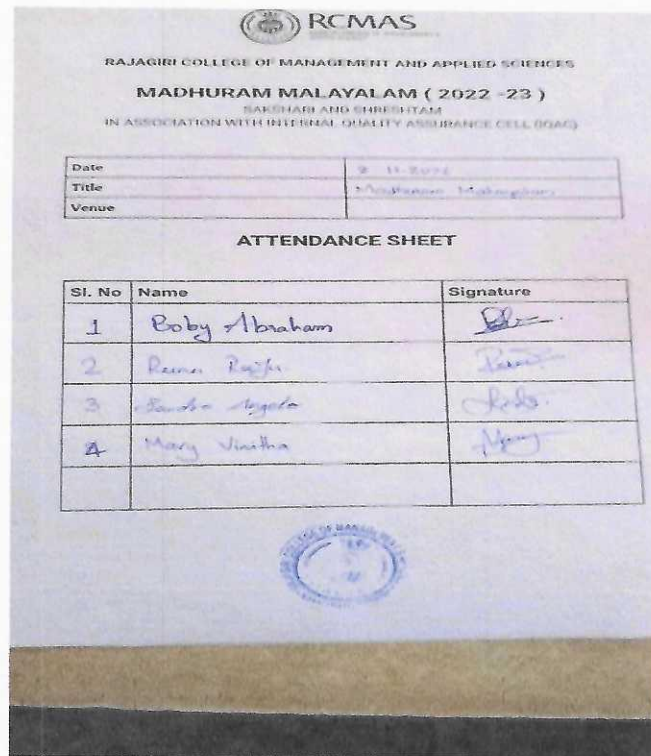 RCMAS
RAJAGIRI COLLEGE OF MANAGEMENT AND APPLIED SCIENCES
MADHURAM MALAYALAM ( 2022 -23 )
SAKSHARI AND SHRESHTAM
IN ASSOCIATION WITH INTERNAL QUALITY ASSURANCE CELL (IQAC)
Date
Title Madhuram Malayalam
Venue
ATTENDANCE SHEET
Sl. No Name Signature
1 Boby Abraham
2
3 Sandra Angela
4 Mary Vinitha
COLLEGE OF